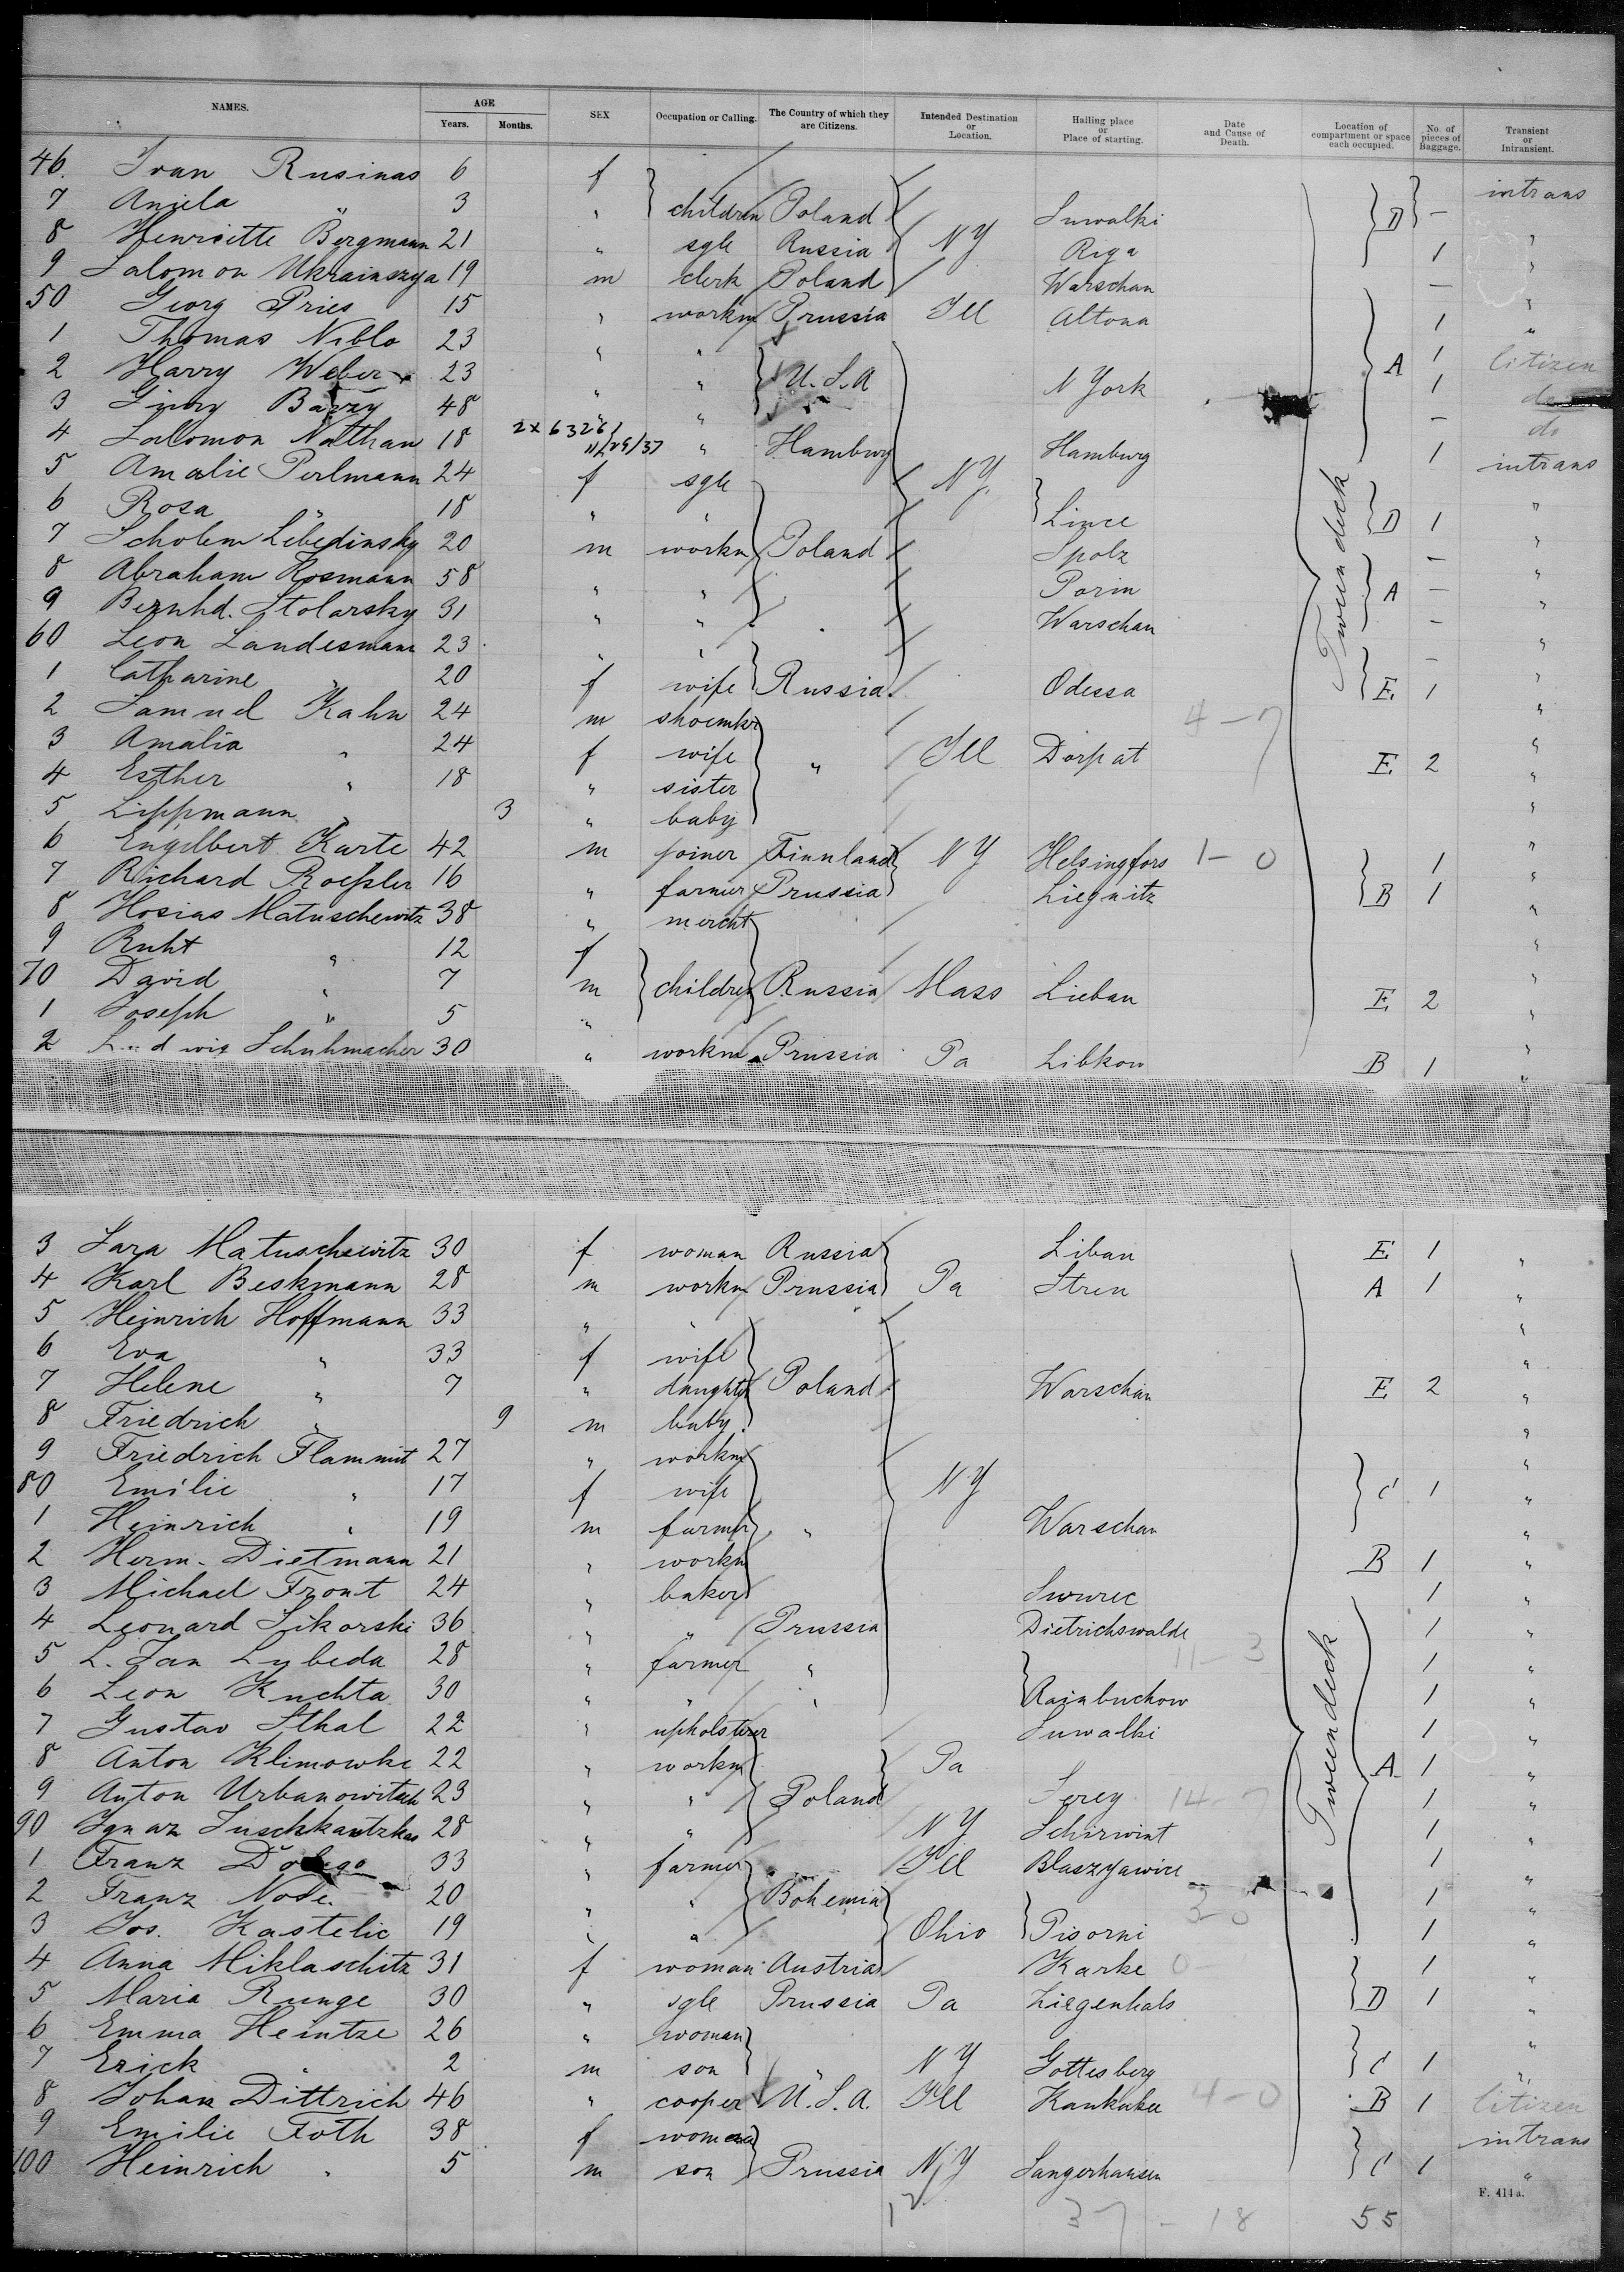 NAMES. AGE Years. Months. SEX Occupation or Calling. The Country of which they are Citizens. Intended Destination or Location. Hailing place or Place of starting. Date and Cause of Death. Location of compartment or space each occupied. No. of pieces of Baggage. Transient or Intransient.
46. Ivan Rusinas 6 f intrans
7 Aniela " 3 " children Poland Suwalki D - "
8 Henriette Bergmann 21 " sgle Russia NY Riga 1 "
9 Salomon Ukrainszya 19 m clerk Poland Warschau - "
50 Georg Pries 15 " workm Prussia Ill Altona 1 "
1 Thomas Niblo 23 " " 1 Citizen
2 Harry Weber 23 " " U.S.A N York A 1 do
3 Barry 48 " " - do
4 Salomon Nathan 18 2x63261 11/29/37 " Hamburg Hamburg 1 intrans
5 Amalie Perlmann 24 f sgle NY "
6 Rosa " 18 " " Lince D 1 "
7 Scholem Lebedinsky 20 m workm Poland Spolz - "
8 Abraham Rosmann 58 " " Porin A - "
9 Bernhd. Stolarsky 31 " " Warschau - "
60 Leon Landesmann 23 " " - "
1 Catharine " 20 f wife Russia Odessa E. 1 "
2 Samuel Kahn 24 m shoemkr 4-7 "
3 Amalia " 24 f wife " Ill Dorpat E 2 "
4 Esther " 18 " sister "
5 Lippmann " 3 " baby "
6 Engelbert Karte 42 m joiner Finnland NY Helsingfors 1-0 1 "
7 Richard Roeßler 16 " farmer Prussia Liegnitz B 1 "
8 Hosias Matuschewitz 38 " mercht "
9 Ruht " 12 f "
70 David " 7 m children Russia Mass Liebau E 2 "
1 Joseph " 5 " "
2 Ludwig Schuhmacher 30 " workm Prussia Pa Libkow B 1 "
3 Sara Matuschewitz 30 f woman Russia Libau E 1 "
4 Karl Beskmann 28 m workm Prussia Pa Stren A 1 "
5 Heinrich Hoffmann 33 " " "
6 Eva " 33 f wife "
7 Helene " 7 " daughter Poland Warschau E 2 "
8 Friedrich " 9 m baby. "
9 Friedrich Flammit 27 " workm "
80 Emilie " 17 f wife NY C 1 "
1 Heinrich " 19 m farmer " Warschau "
2 Herm. Dietmann 21 " workm B 1 "
3 Michael Front 24 " baker Swurec 1 "
4 Leonard Sikorski 36 " " Prussia Dietrichswalde 1 "
5 L. Jan Lybeda 28 " farmer " 11-3 1 "
6 Leon Kuchta 30 " " " Rainbuchow 1 "
7 Gustav Sthal 22 " upholsterer Suwalki 1 "
8 Anton Klimowke 22 " workm Pa A 1 "
9 Anton Urbanowitsch 23 " " Poland Serey 14-7 1 "
90 Ignaz Suschkautzkas 28 " " NY Schirwint 1 "
1 Franz 33 " farmer Ill Blaszyawice 1 "
2 Franz Node. 20 " " Bohemia 3-0 1 "
3 Jos. Kastelic 19 " " Ohio Pisorni 1 "
4 Anna Miklaschitz 31 f woman Austria Karke 0- 1 "
5 Maria Runge 30 " sgle Prussia Pa Ziegenhals D 1 "
6 Emma Heintze 26 " woman "
7 Erick " 2 m son " NY Gottesberg C 1 "
8 Johan Dittrich 46 " cooper U.S.A. Ill Kankakee 4-0 B 1 Citizen
9 Emilie Foth 38 f woman intrans
100 Heinrich " 5 m son Prussia NY Sangerhausen C 1 "
Tween deck
Tweendeck
F. 414 a.
37 - 18 55